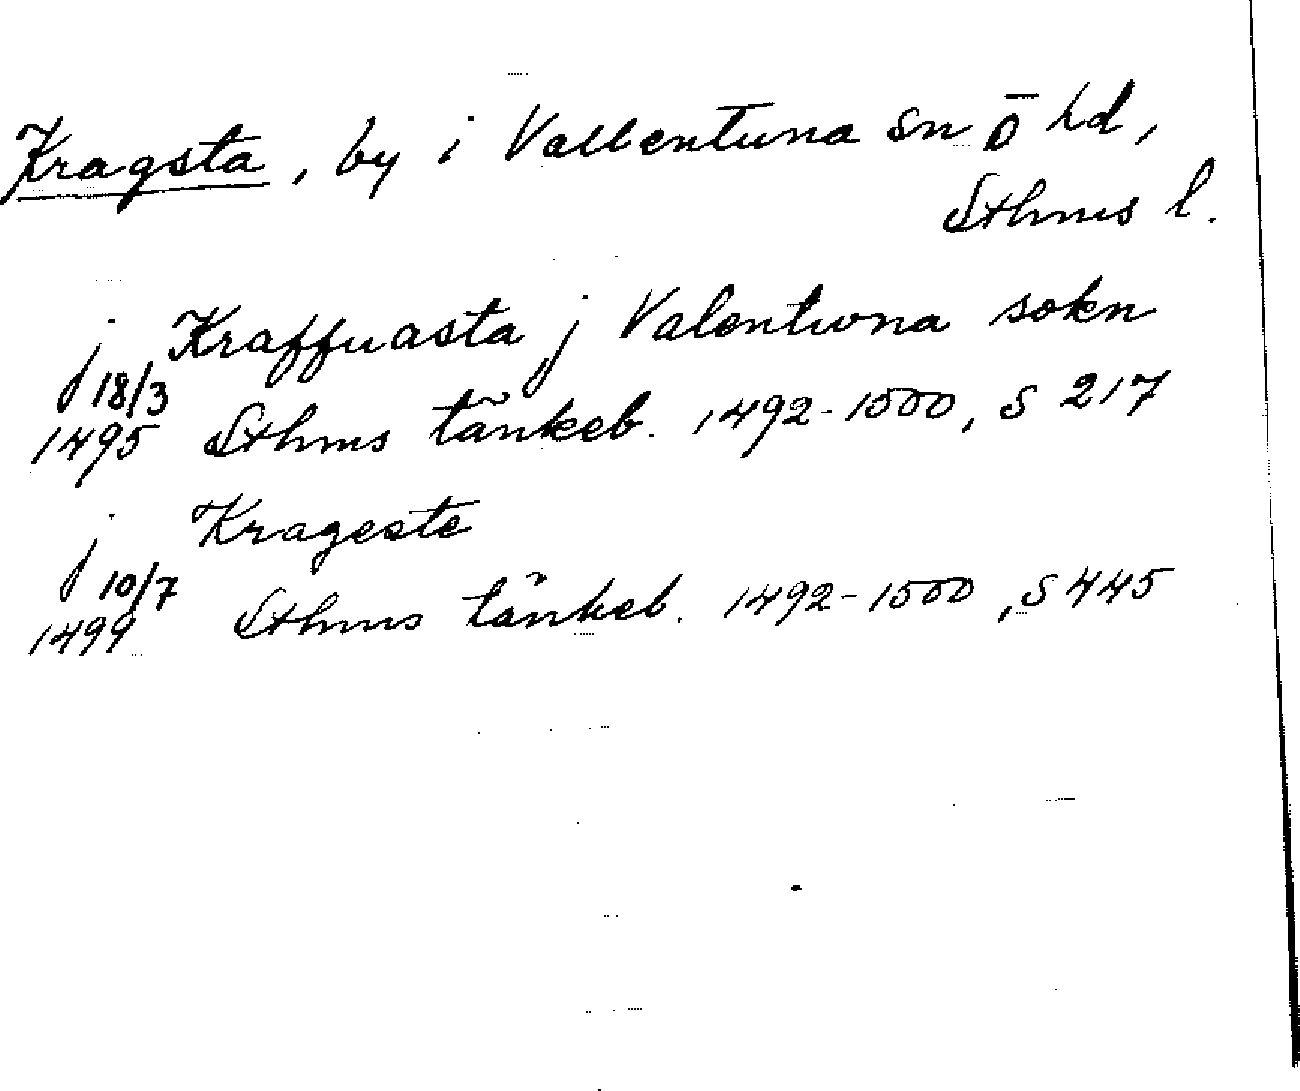 Kragsta, by i Vallentuna sn ō hd,
Sthms l.
j Kraffuasta j Valentwna sokn
18/3
1495 Sthms tänkeb. 1492-1500, s 217
j Krageste
10/7
1499 Sthms tänkeb. 1492-1500, s 445